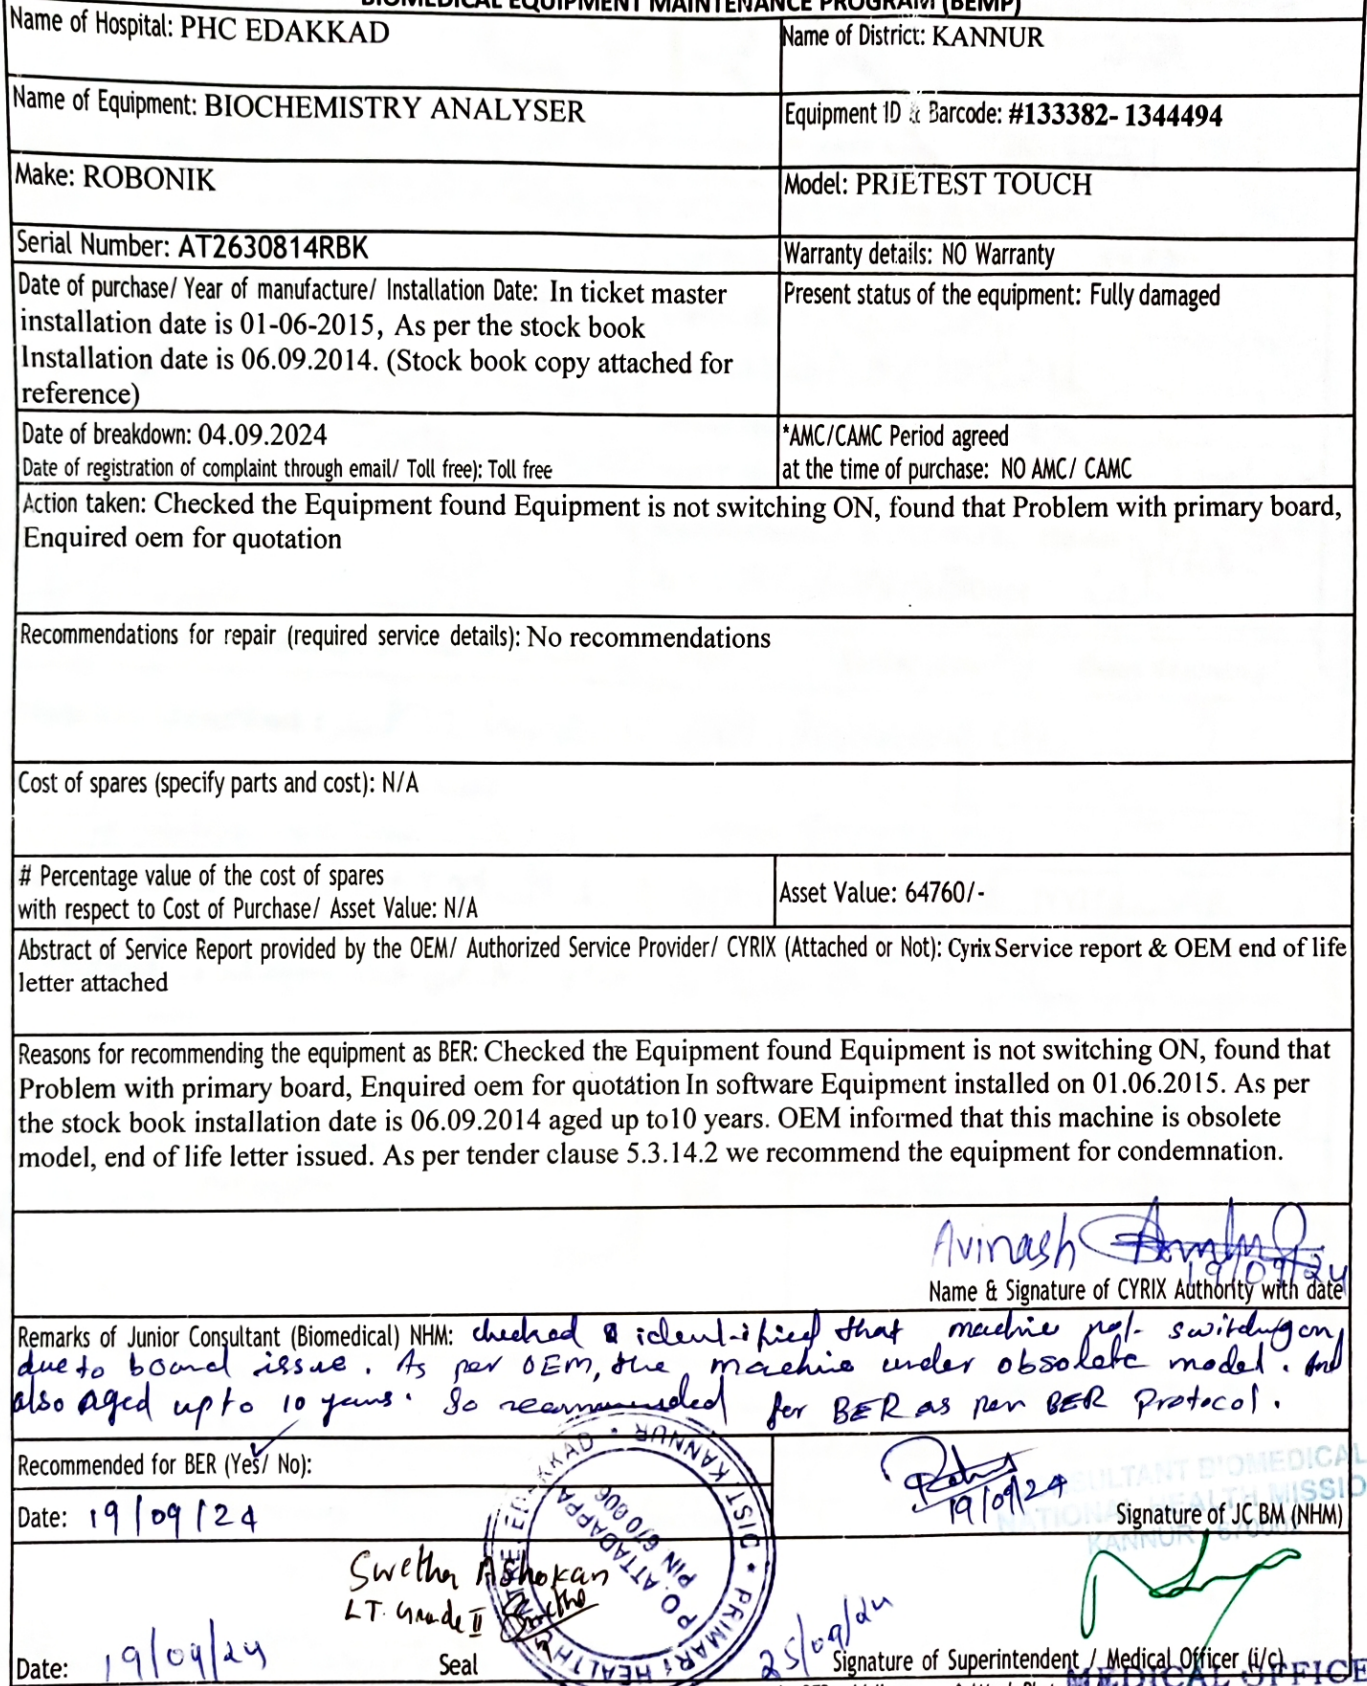 BIOMEDICAL EQUIPMENT MAINTENANCE PROGRAM (BEMP)
Name of Hospital: PHC EDAKKAD
Name of District: KANNUR
Name of Equipment: BIOCHEMISTRY ANALYSER
Equipment ID & Barcode: #133382- 1344494
Make: ROBONIK
Model: PRIETEST TOUCH
Serial Number: AT2630814RBK
Warranty details: NO Warranty
Date of purchase/ Year of manufacture/ Installation Date: In ticket master
installation date is 01-06-2015, As per the stock book
Installation date is 06.09.2014. (Stock book copy attached for
reference)
Present status of the equipment: Fully damaged
Date of breakdown: 04.09.2024
Date of registration of complaint through email/ Toll free): Toll free
*AMC/CAMC Period agreed
at the time of purchase: NO AMC/ CAMC
Action taken: Checked the Equipment found Equipment is not switching ON, found that Problem with primary board,
Enquired oem for quotation
Recommendations for repair (required service details): No recommendations
Cost of spares (specify parts and cost): N/A
# Percentage value of the cost of spares
with respect to Cost of Purchase/ Asset Value: N/A
Asset Value: 64760/-
Abstract of Service Report provided by the OEM/ Authorized Service Provider/ CYRIX (Attached or Not): Cyrix Service report & OEM end of life
letter attached
Reasons for recommending the equipment as BER: Checked the Equipment found Equipment is not switching ON, found that
Problem with primary board, Enquired oem for quotation In software Equipment installed on 01.06.2015. As per
the stock book installation date is 06.09.2014 aged up to10 years. OEM informed that this machine is obsolete
model, end of life letter issued. As per tender clause 5.3.14.2 we recommend the equipment for condemnation.
Avinash
19/09/24
Name & Signature of CYRIX Authority with date
Remarks of Junior Consultant (Biomedical) NHM: checked & identified that machine not switching on,
due to board issue. As per OEM, the machine under obsolete model. And
also aged upto 10 years. So recommended for BER as per BER Protocol.
Recommended for BER (Yes/ No):
Date: 19/09/24
19/09/24
CONSULTANT BIOMEDICAL
NATIONAL HEALTH MISSION
KANNUR
Signature of JC BM (NHM)
Swetha Ashokan
LT. Grade II
PRIMARY HEALTH CENTRE EDAKKAD • KANNUR DISTRICT •
P.O. ATTADAPPA
PIN 670 006
Date: 19/09/24
Seal
25/09/24
Signature of Superintendent / Medical Officer (i/c)
MEDICAL OFFICE